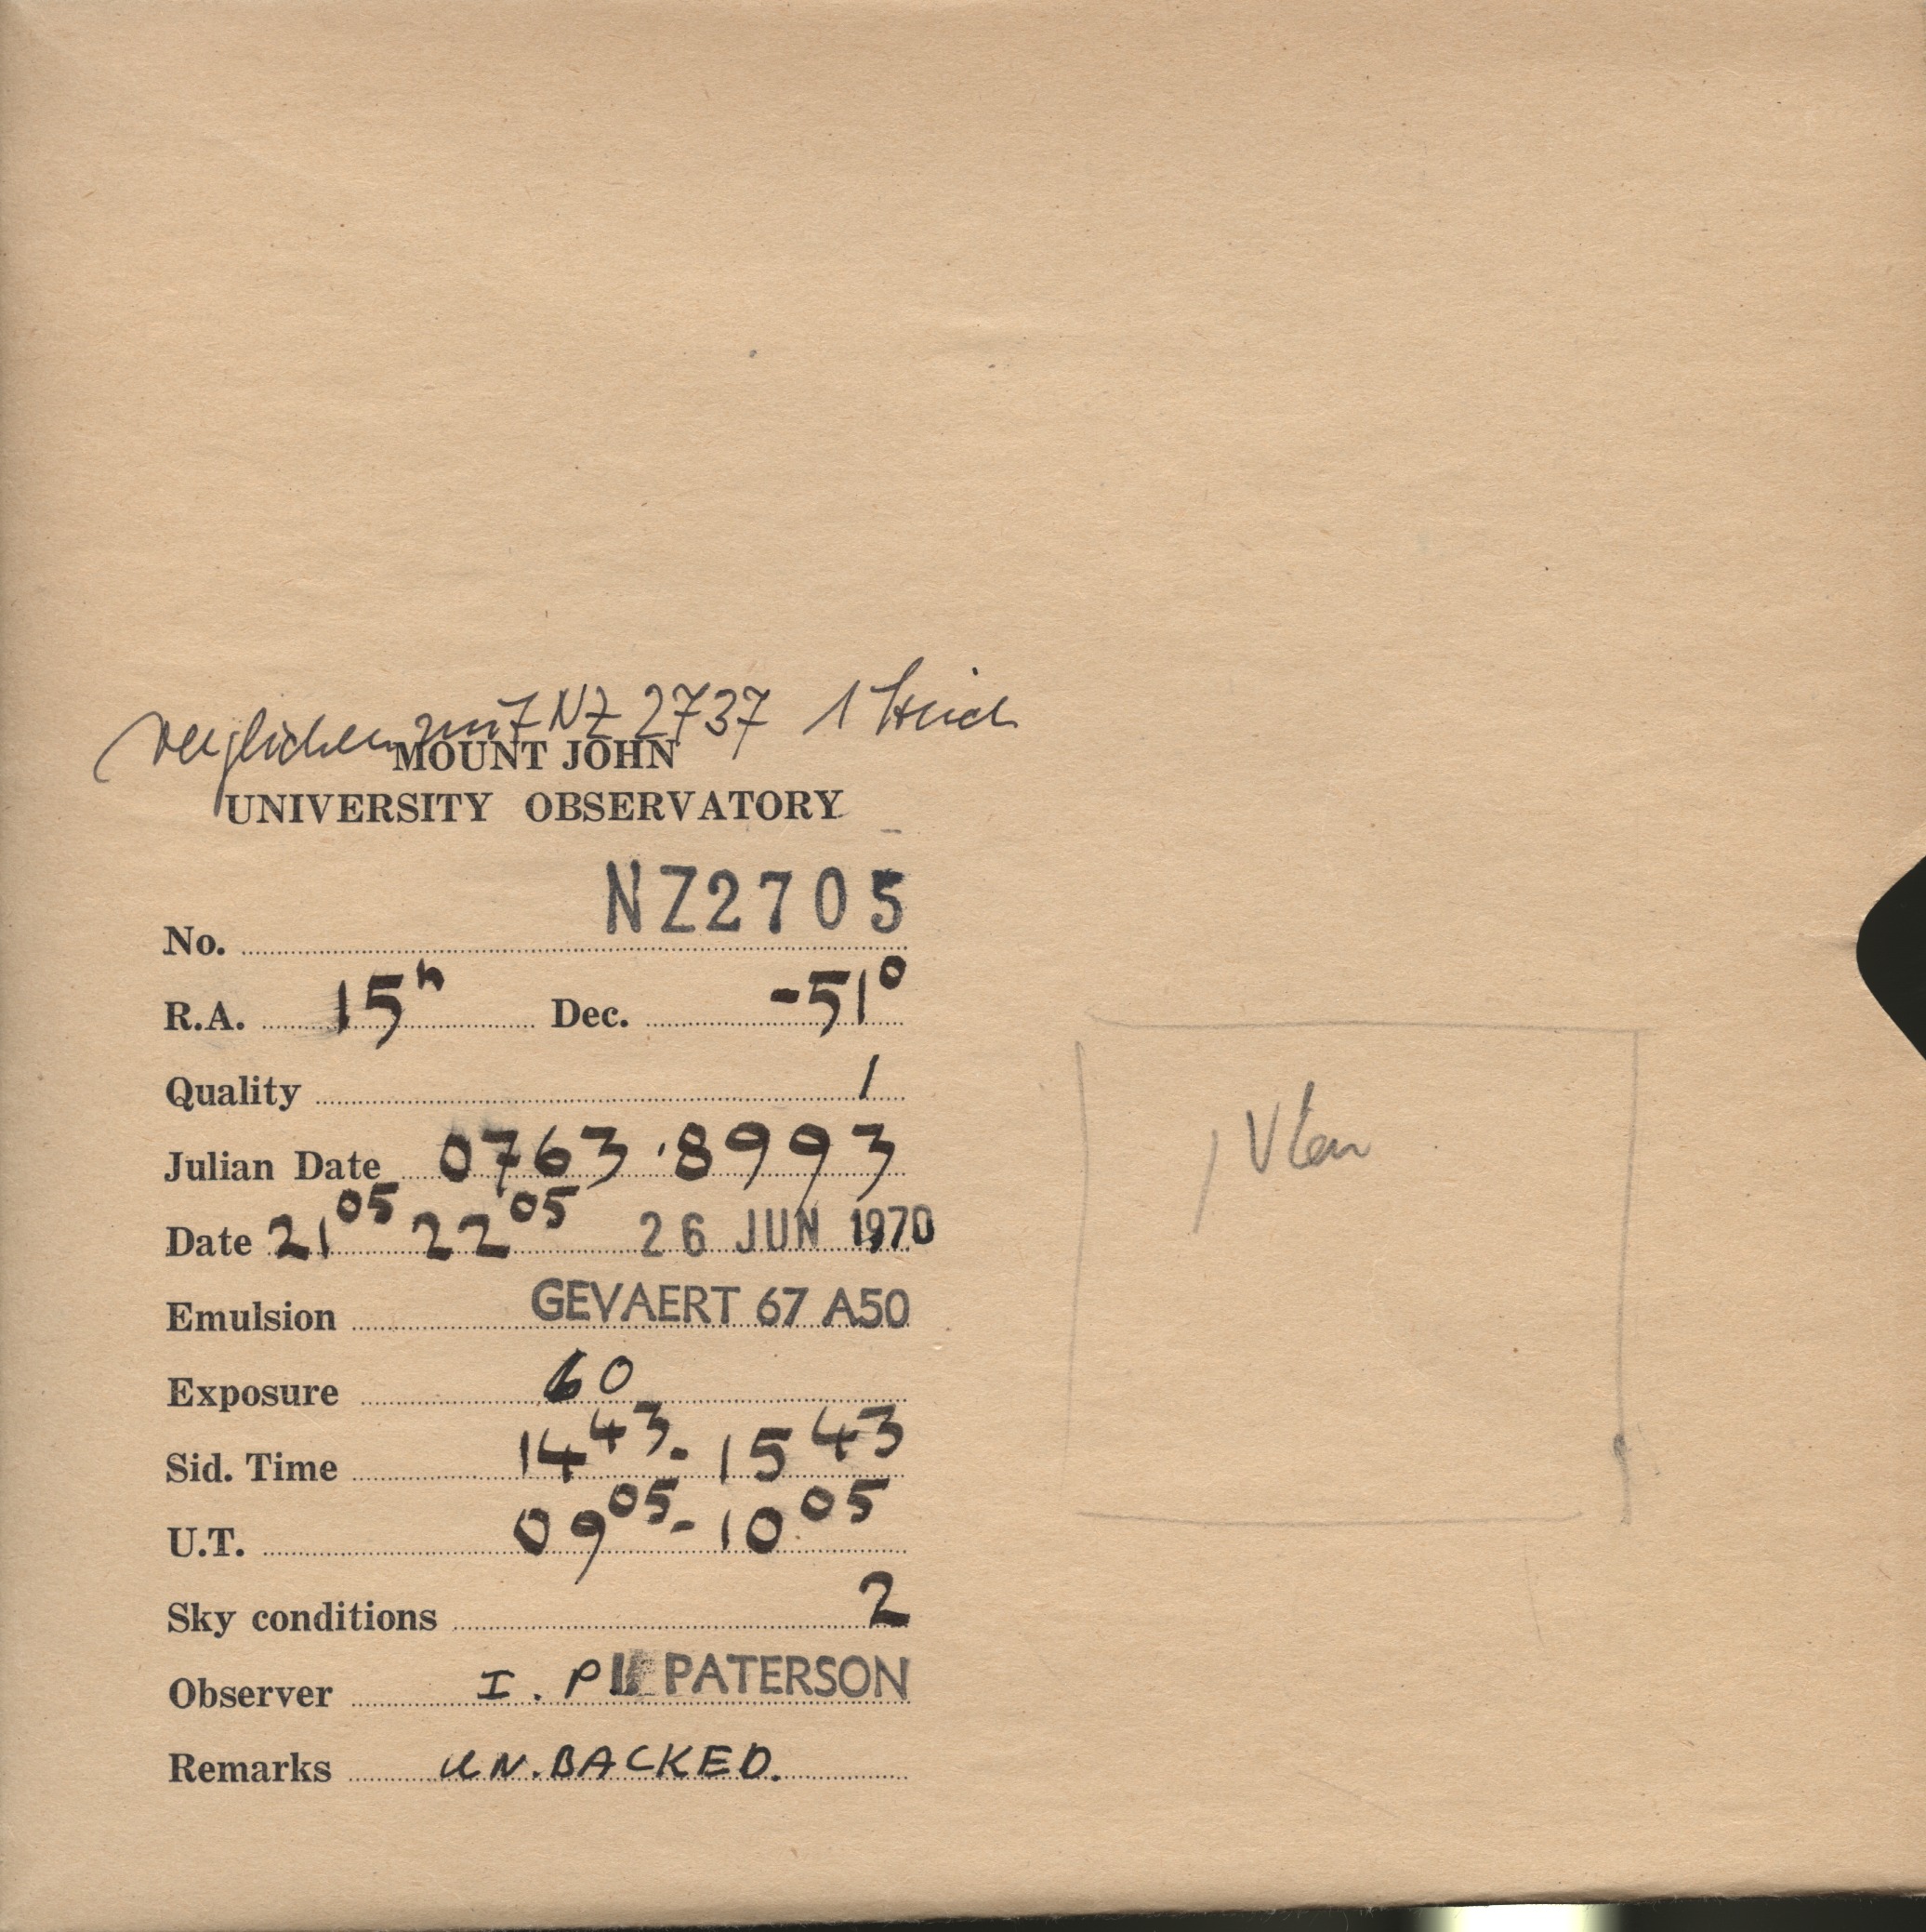 verglichen mit NZ 2737 1 Strich
MOUNT JOHN
UNIVERSITY OBSERVATORY
No. NZ2705
R.A. 15h Dec. -51°
Quality 1
Julian Date 0763.8993
Date 21 05 22 05 26 JUN 1970
Emulsion GEVAERT 67 A50
Exposure 60
Sid. Time 14 43 - 15 43
U.T. 09 05 - 10 05
Sky conditions 2
Observer I. P PATERSON
Remarks UN.BACKED.